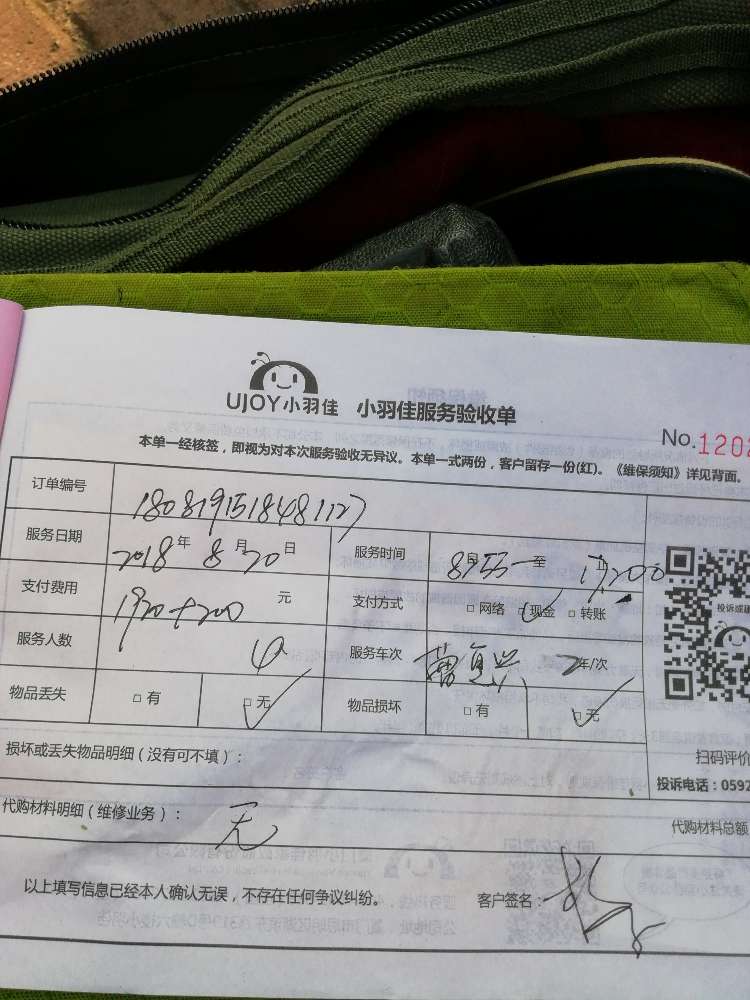 UJOY小羽佳 小羽佳服务验收单
No.1202
本单一经核签，即视为对本次服务验收无异议。本单一式两份，客户留存一份(红)。《维保须知》详见背面。
订单编号 1808191518481127
服务日期 2018年8月20日 服务时间 8:55 至 17:200
支付费用 1920+200 元 支付方式 □网络 □现金 □转账
服务人数 4 服务车次 2年/次
物品丢失 □有 □无 物品损坏 □有 □无
投诉或建
扫码评价
损坏或丢失物品明细（没有可不填）：
投诉电话：0592
代购材料明细（维修业务）： 无
代购材料总额
以上填写信息已经本人确认无误，不存在任何争议纠纷。 客户签名：